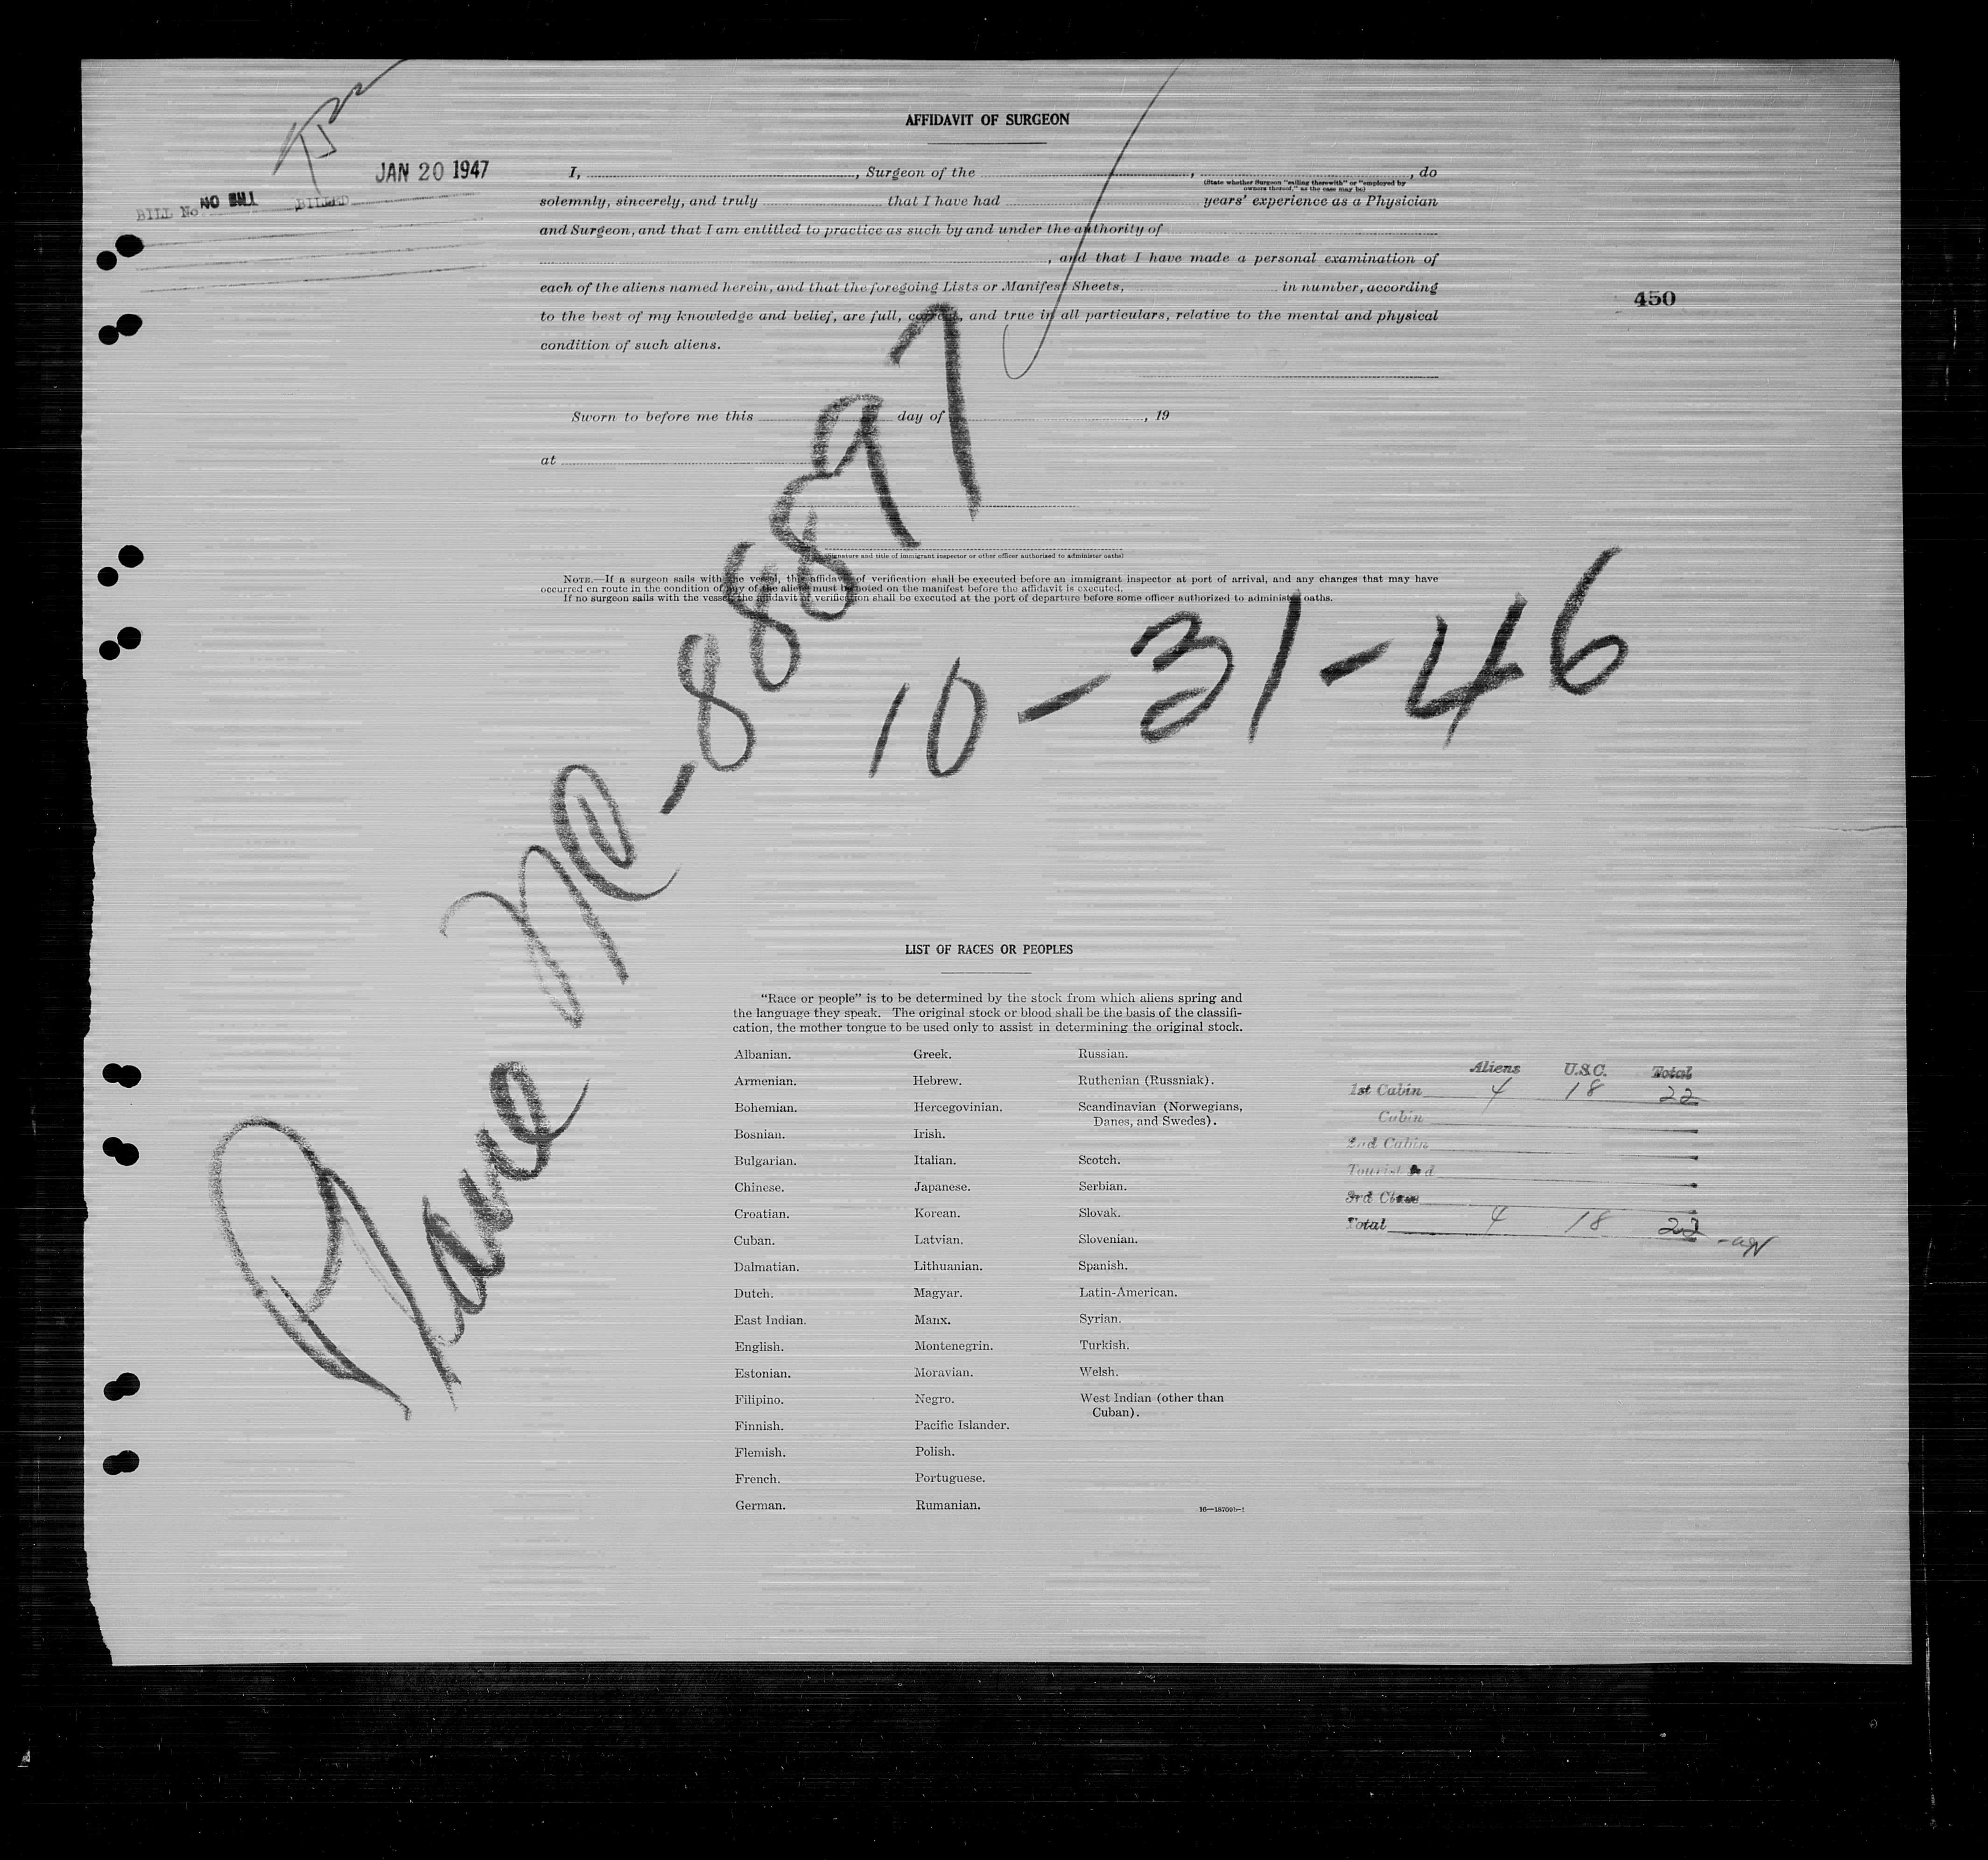 AFFIDAVIT OF SURGEON
JAN 20 1947
BILL No. NO BILL BILLED
I, , Surgeon of the , , do
(State whether Surgeon "sailing therewith" or "employed by
owners thereof," as the case may be)
solemnly, sincerely, and truly that I have had years' experience as a Physician
and Surgeon, and that I am entitled to practice as such by and under the authority of
, and that I have made a personal examination of
each of the aliens named herein, and that the foregoing Lists or Manifest Sheets, in number, according
to the best of my knowledge and belief, are full, correct, and true in all particulars, relative to the mental and physical
condition of such aliens.
450
Sworn to before me this day of , 19
at
(Signature and title of immigrant inspector or other officer authorized to administer oaths)
NOTE.—If a surgeon sails with the vessel, this affidavit of verification shall be executed before an immigrant inspector at port of arrival, and any changes that may have
occurred en route in the condition of any of the aliens must be noted on the manifest before the affidavit is executed.
If no surgeon sails with the vessel, the affidavit of verification shall be executed at the port of departure before some officer authorized to administer oaths.
Plane NC-88897
10-31-46
LIST OF RACES OR PEOPLES
"Race or people" is to be determined by the stock from which aliens spring and
the language they speak. The original stock or blood shall be the basis of the classifi-
cation, the mother tongue to be used only to assist in determining the original stock.
Albanian.
Armenian.
Bohemian.
Bosnian.
Bulgarian.
Chinese.
Croatian.
Cuban.
Dalmatian.
Dutch.
East Indian.
English.
Estonian.
Filipino.
Finnish.
Flemish.
French.
German.
Greek.
Hebrew.
Hercegovinian.
Irish.
Italian.
Japanese.
Korean.
Latvian.
Lithuanian.
Magyar.
Manx.
Montenegrin.
Moravian.
Negro.
Pacific Islander.
Polish.
Portuguese.
Rumanian.
Russian.
Ruthenian (Russniak).
Scandinavian (Norwegians,
Danes, and Swedes).
Scotch.
Serbian.
Slovak.
Slovenian.
Spanish.
Latin-American.
Syrian.
Turkish.
Welsh.
West Indian (other than
Cuban).
16—18709b-1
Aliens U.S.C. Total
1st Cabin 4 18 22
Cabin
2nd Cabin
Tourist
3rd Class
Total 4 18 22